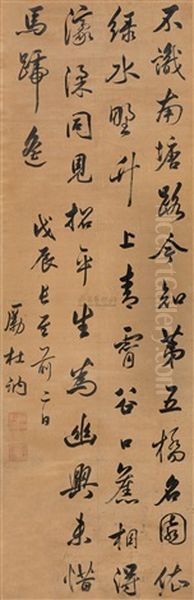 不識南塘路今知第五橋名園依
綠水野竹上青霄谷口舊相得
濠梁同見招平生為幽興未惜
馬蹄遙 戊辰長至前二日
勵杜訥